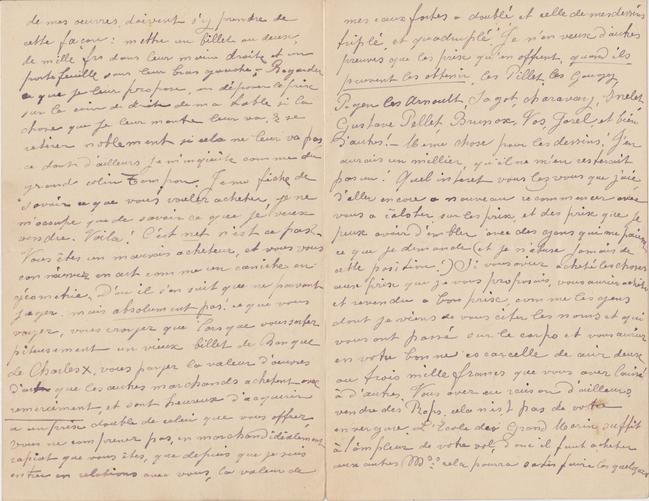 de mes œuvres, doivent s'y prendre de
cette façon : mettre un billet ou deux,
de mille frs dans leur main droite et un
portefeuille sous leur bras gauche ; Regarder
ce que je leur propose, en déposer le prix
sur le coin de droite de ma table si la
chose que je leur montre leur va, & se
retirer noblement si cela ne leur va pas
ce dont d'ailleurs je m'inquiète comme du
grand colin Tampon. Je me fiche de
savoir ce que vous voulez acheter, je ne
m'occupe que de savoir ce que je veux
vendre. Voilà ! C'est net n'est ce pas.
Vous êtes un mauvais acheteur, et vous vous
connaissez en art comme un caniche en
géométrie. D'où il s'en suit que ne pouvant
juger mais absolument pas ! ce que vous
voyez, vous croyez que lorsque vous sortez
piteusement un vieux billet de Banque
de Charles X, vous payez la valeur d'œuvres
d'art que les autres marchands achetent avec
remerciement, et sont heureux d'acquérir
a un prix double de celui que vous offrez
Vous ne comprenez pas, en marchand idéalement
rapiat que vous êtes, que depuis que je suis
entré en relations avec vous, la valeur de
mes eaux fortes a doublé et celle de mes dessins
triplé, et quadruplé ! Je n'en veux d'autres
preuves que les prix qu'en offrent, quand ils
peuvent les obtenir, les Pillet les Gougy
les Arnoult, Sagot, Charavay,
Gustave Pellet, Vos, Jorel et bien
d'autres ! – Meme chose pour les dessins, J'en
aurais un millier, qu'il ne m'en resterait
pas un ! Quel interet voulez vous que j'aie
d'aller encore a nouveau recommencer avec
vous a sur les prix et des prix que je
peux avoir d'emblée avec des gens qui me paient
ce que je demande (et je n'abuse jamais de
cette position !) Si vous aviez acheté les choses
aux prix que je vous proposais, vous auriez acheté
et revendu a bon prix, comme les gens
dont je viens de vous citer les noms et qui
vous ont passé sur le corps et vous auriez
en votre bonne escarcelle de cuir deux
ou trois mille francs que vous avez laissé
à d'autres. Vous avez eu raison d'ailleurs
vendre des Rops, cela n'est pas de votre
envergure. L'Ecole des Grand Morin suffit
à l'ampleur de votre vol, d'où il faut acheter
aux autres Mds cela pourra satisfaire les quelques